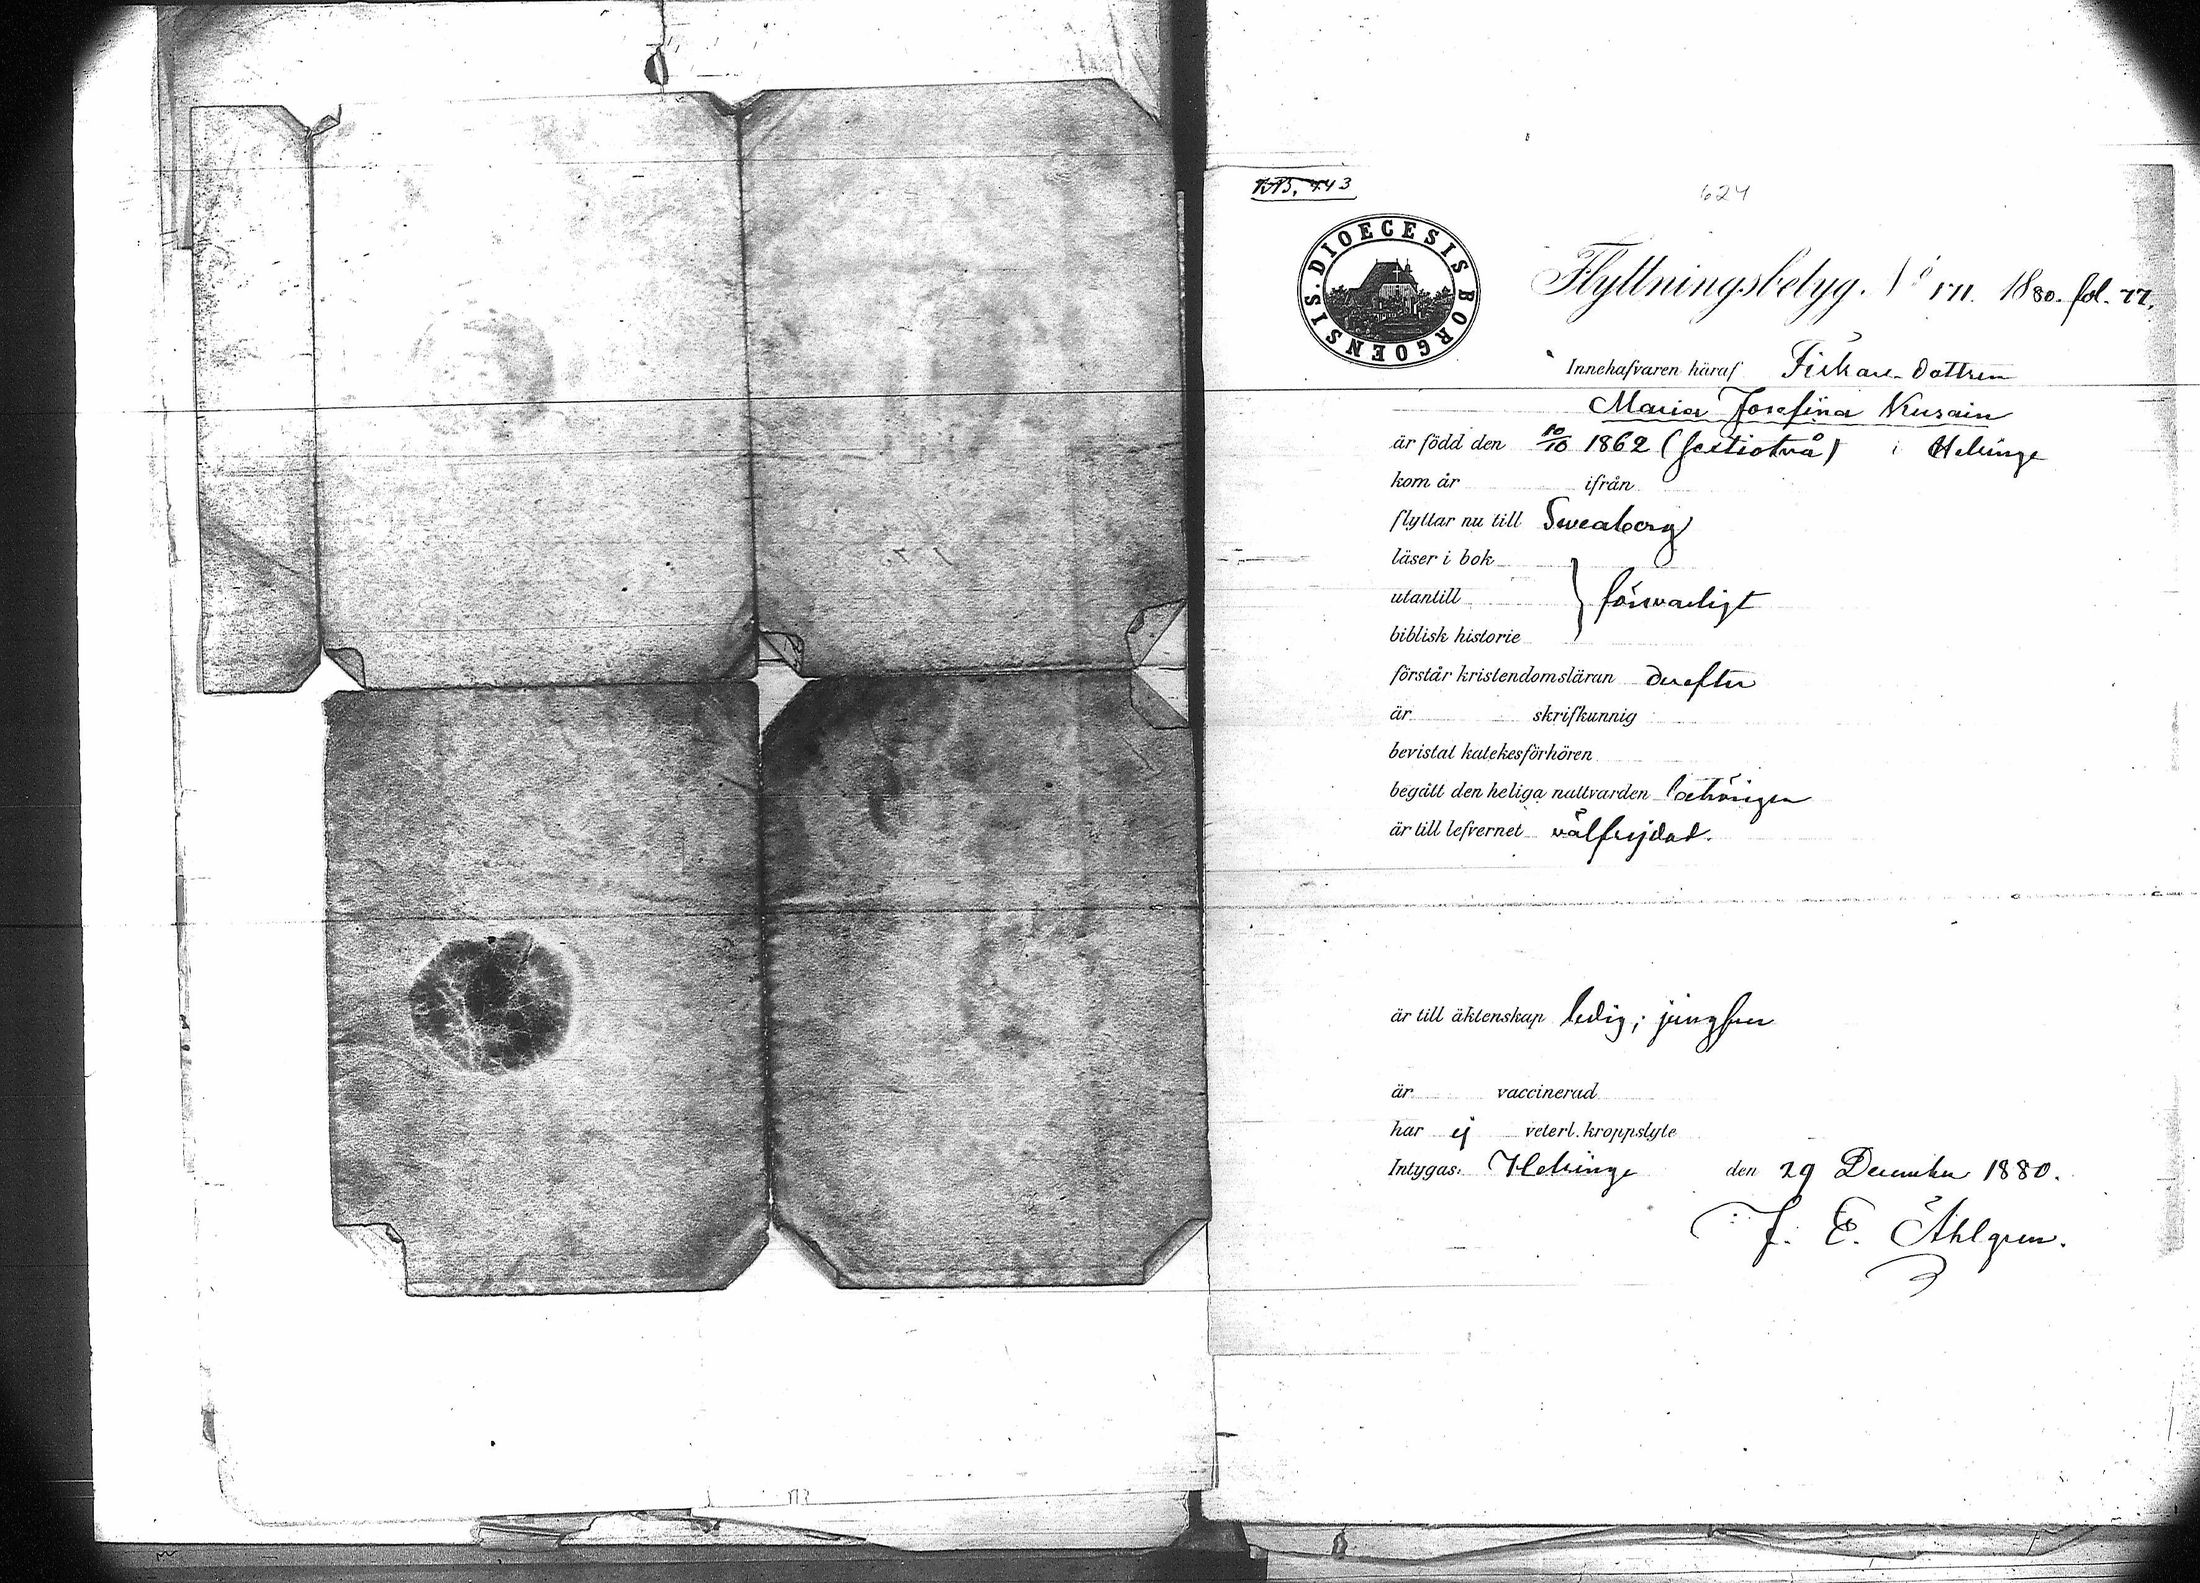 KB. 443
624
DIOECESIS BORGOENSIS.
Flyttningsbetyg. No 171. 1880. fol. 77.
Innehafvaren häraf Fiskare-dottren
Maria Josefina
är född den 10/10 1862 (sextiotvå) i Helsinge
kom år ifrån
flyttar nu till Sveaborg
läser i bok
utantill } försvarligt
biblisk historie
förstår kristendomsläran derefter
är skrifkunnig
bevistat katekesförhören
begått den heliga nattvarden behörigen
är till lefvernet välfrejdad.
är till äktenskap ledig; jungfru
är vaccinerad
har ej veterl. kroppslyte
Intygas: Helsinge den 29 December 1880.
J. E. Åhlgren.